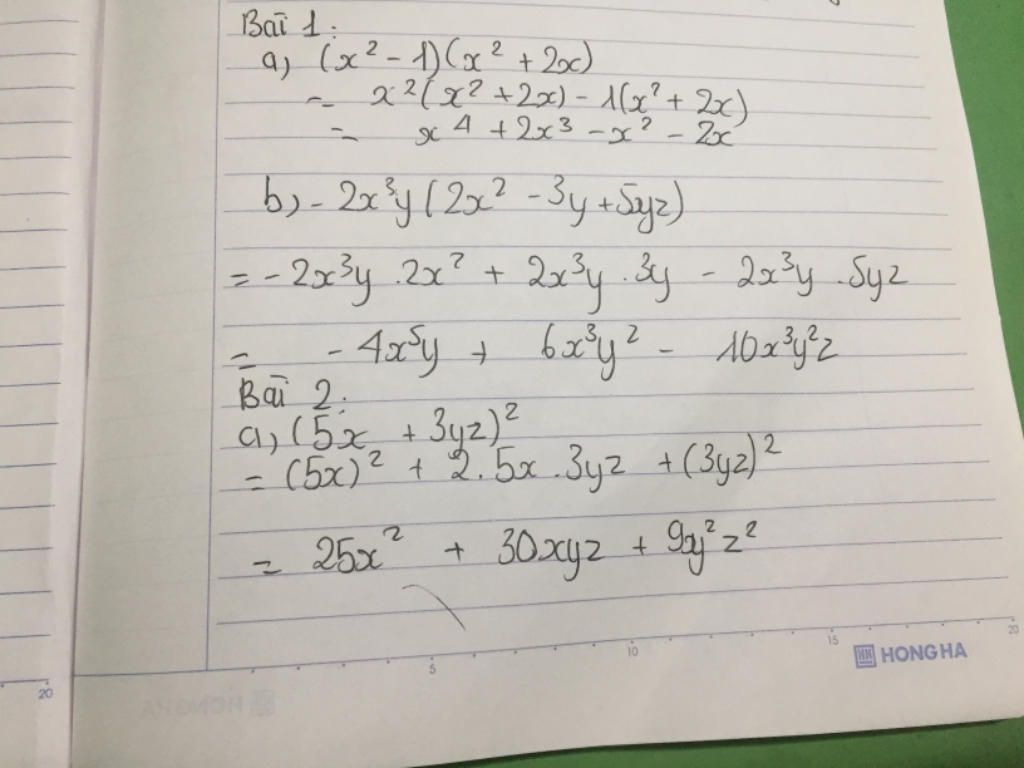 Bài 1:
a, (x² - 1)(x² + 2x)
= x²(x² + 2x) - 1(x² + 2x)
= x⁴ + 2x³ - x² - 2x
b, - 2x³y (2x² - 3y + 5yz)
= - 2x³y . 2x² + 2x³y . 3y - 2x³y . 5yz
= - 4x⁵y + 6x³y² - 10x³y²z
Bài 2:
a, (5x + 3yz)²
= (5x)² + 2.5x.3yz + (3yz)²
= 25x² + 30xyz + 9y²z²
5 10 15 20
HONG HA
20